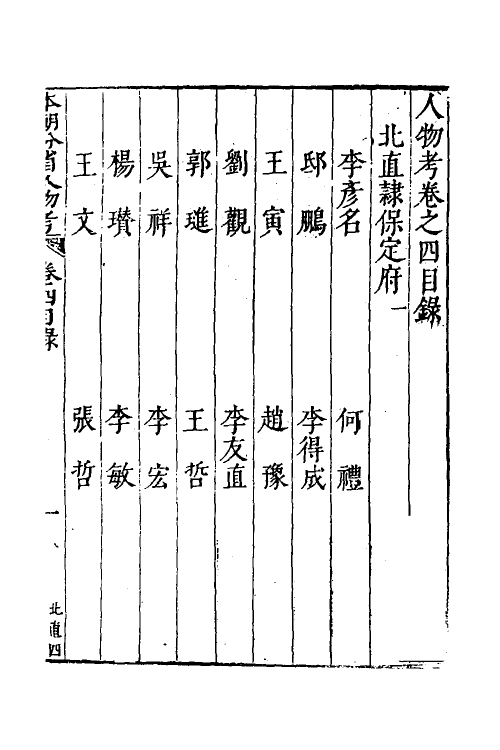 人物考卷之四目錄
北直隷保定府一
李彥名 何禮
邸鵬 李得成
王寅 趙豫
劉觀 李友直
郭璡 王哲
吳祥 李宏
楊瓚 李敏
王文 張哲
本朝分省人物考 卷四目錄 一 北直四